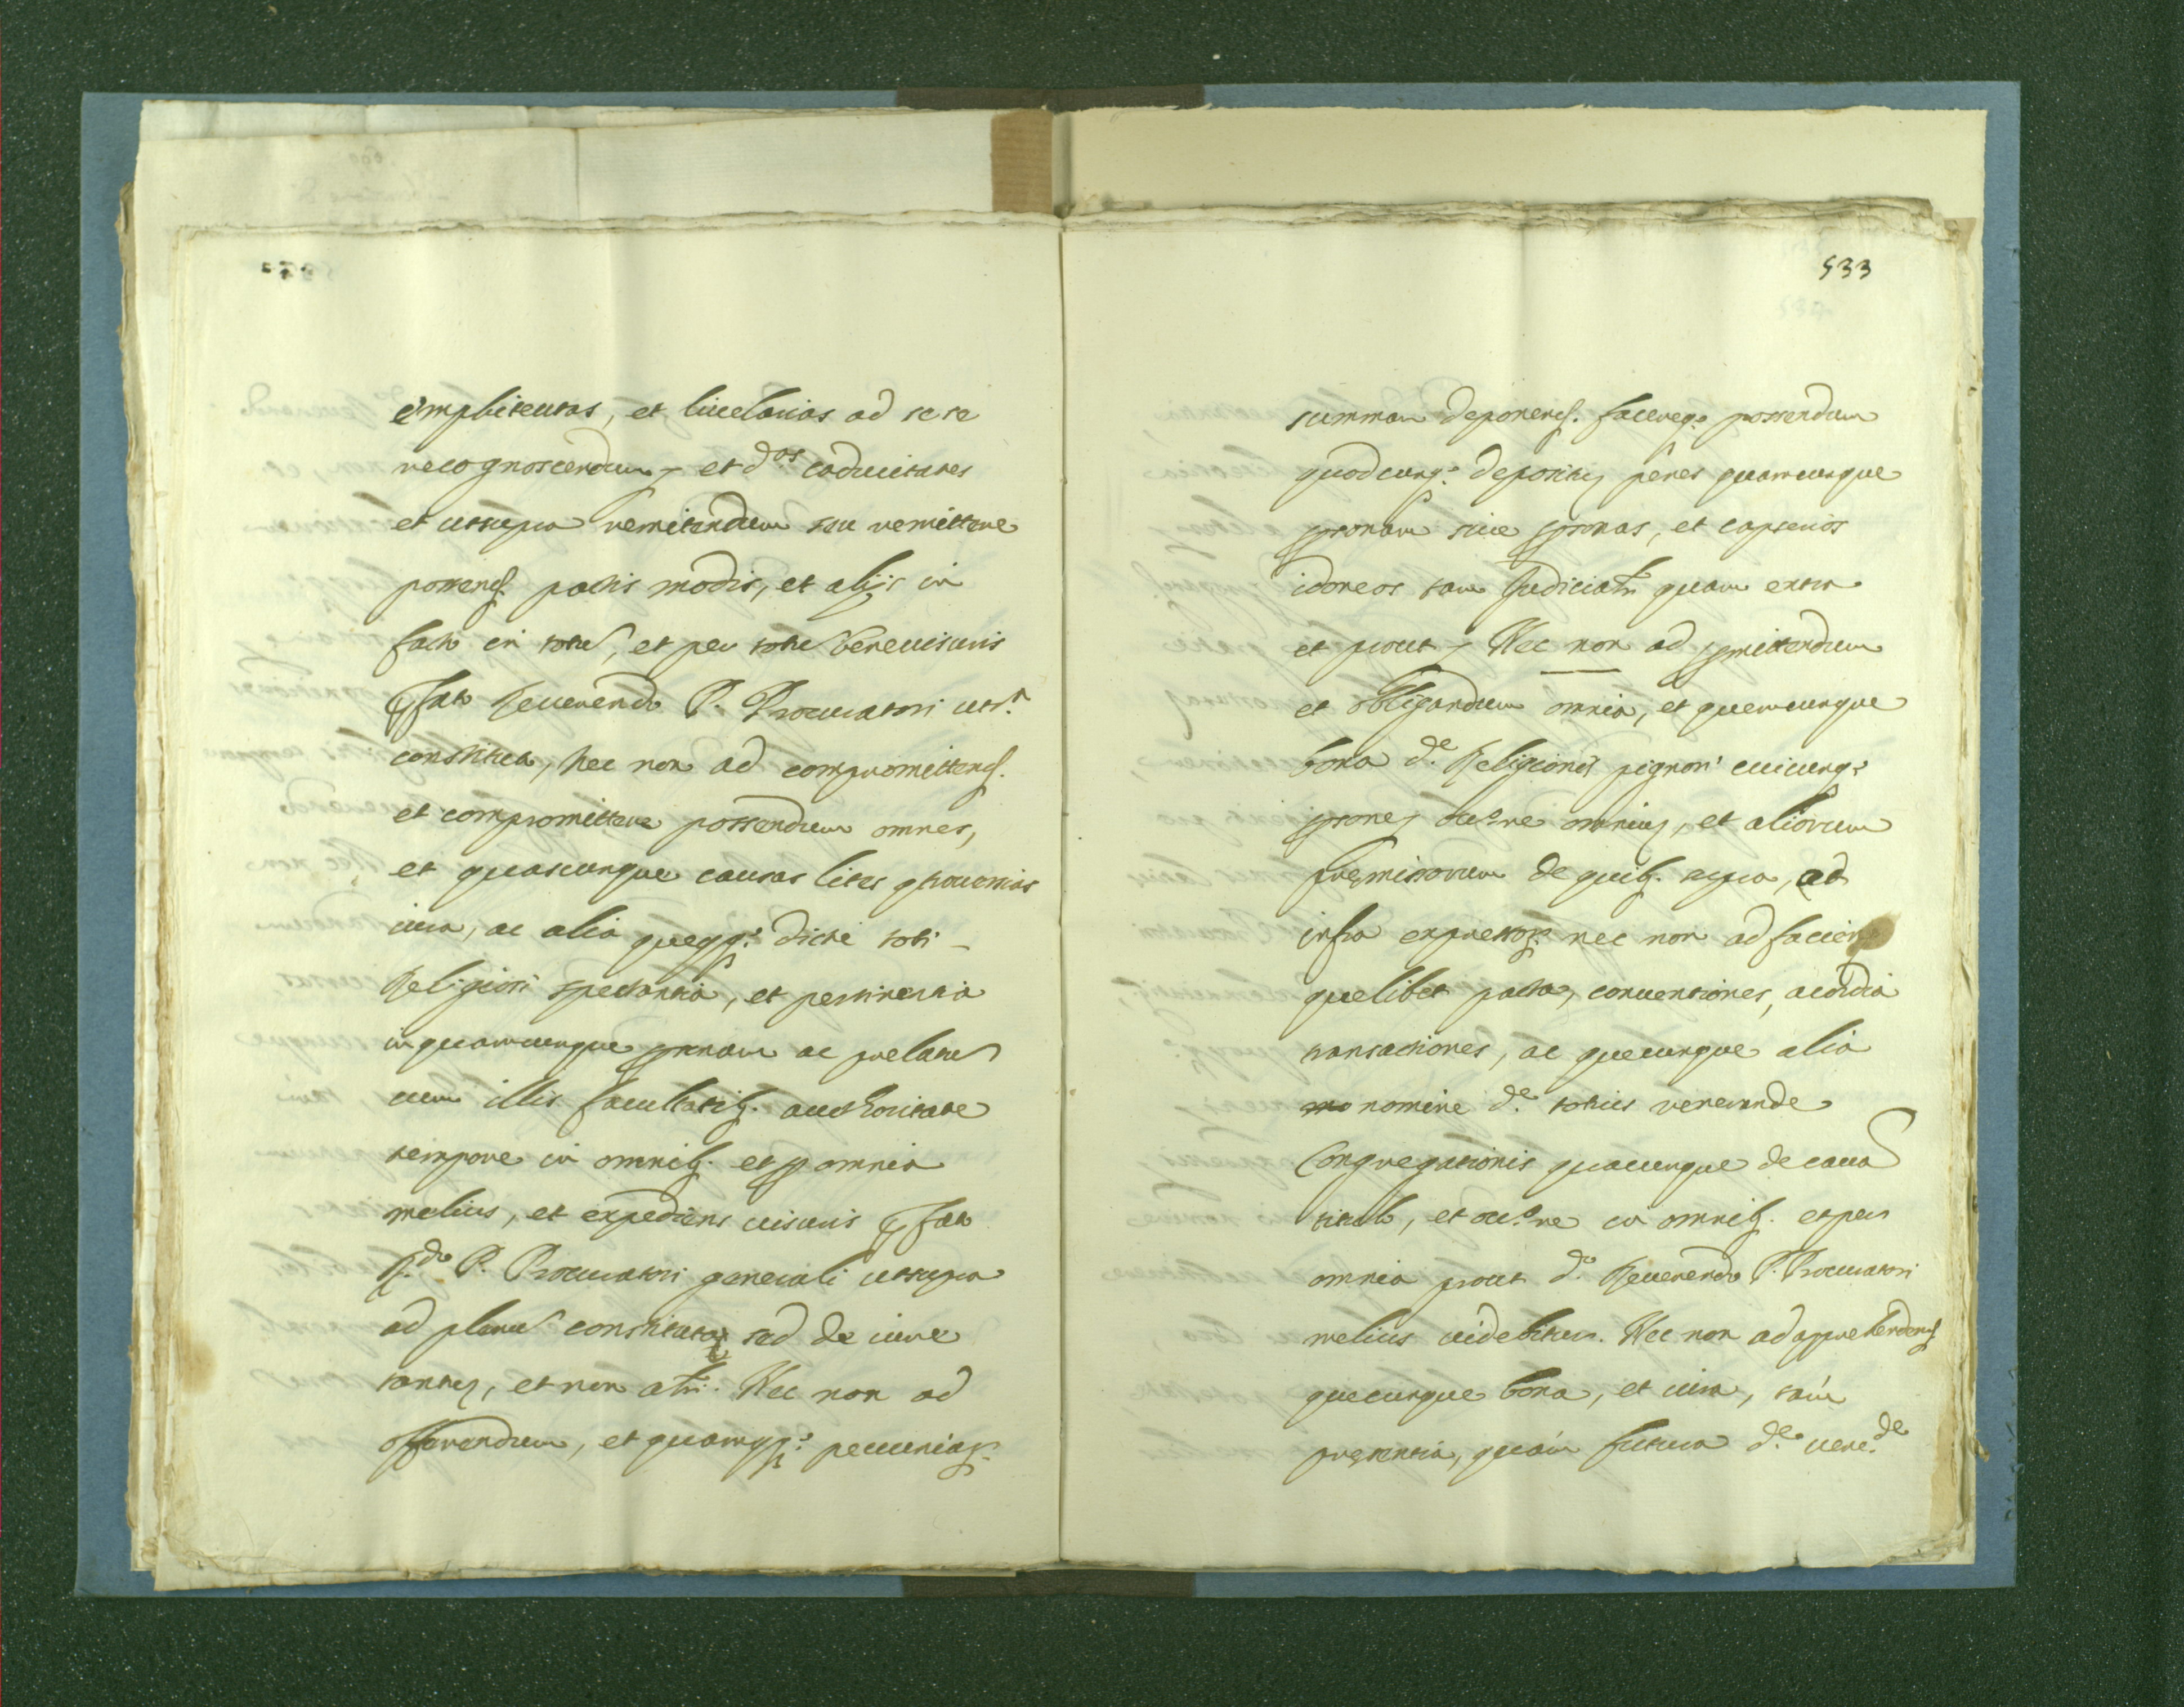 emphiteutas, et livelarios ad se se
recognoscendum, et d.os caducitates
et ut supra remitendum seu remittere
possend. pactis modis, et alijs in
facto in totu, et per totu bene visuris
pfato Reverendo P. Procuratori ut s.a
constituto, nec non ad compromittend.
et compromittere possendum omnes,
et quascunque causas lites
iura, ac alia queqq. dicte toti
Religioni spectantia, et pertinentia
in quamcunque psonam ac prelatu
cum illis facultatib. authoritate
tempore in omnib. et p omnia
melius, et expediens visuris pfato
R.do P. Procuratori generali ut supra
ad plenu constituto, sed de iure
tantu, et non atr. Nec non ad
offerendum, et quamqq. pecuniar.
533
summam deponend. facereq. possendum
quodcunq. depositu penes quamcunque
psonam sive psonas, et capserios
idoneos tam Judicialr quam extra
et prout, Nec non ad pmittendum
et obligandum omnia, et quecunque
bona d.e Religionis pignori cuicunq.
psone, omniu, et aliorum
premissorum de quib. supra, ad
infra expressor. nec non ad faciend
quelibet pacta, conventiones, acordia
transactiones, ac quecunque alia
nomine d.e totius venerande
Congregationis quacunque de causa
titulo, et occ.ne in omnib. et per
omnia prout d.o Reverendo P. Procuratori
melius videbitur. Nec non ad apprehendend.
quecunque bona, et iura, tam
presentia, quam futura d.e vene.de